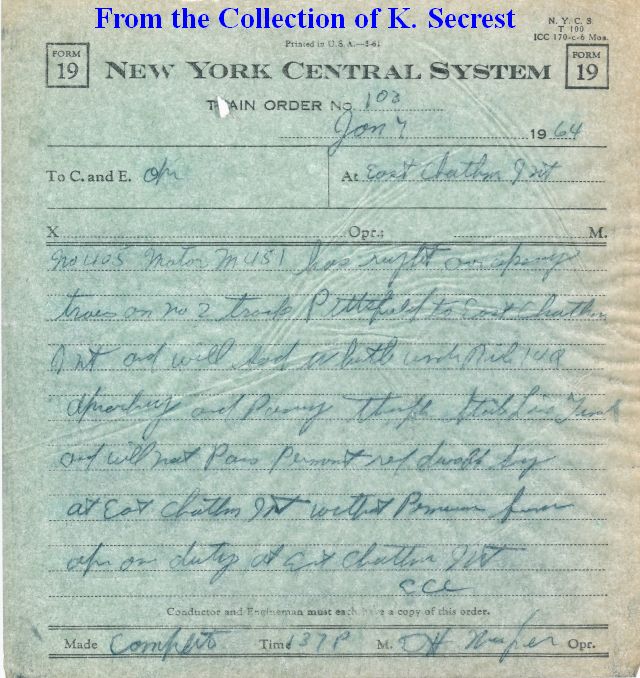 From the Collection of K. Secrest
N. Y. C. S.
T 100
ICC 170-c-6 Mos.
Printed in U. S. A.—5-61
FORM 19
NEW YORK CENTRAL SYSTEM
FORM 19
TRAIN ORDER No. 103
Jan 7 1964
To C. and E. Opr
At East Chatham Int
X Opr.; M.
No 405 Motor M451 has right over opposing
trains on no 2 track Pittsfield to East Chatham
Int and will
approaching and Passing through State Line Tunnel
and will not Pass Permanent red
at East Chatham Int without Permission from
opr on duty at East Chatham Int
CCC
Conductor and Engineman must each have a copy of this order.
Made Complete Time 137 P M. Opr.